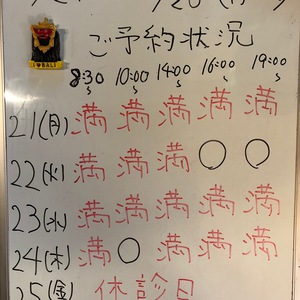 ご予約状況
I ♥ BALI
8:30 10:00 14:00 16:00 19:00
21(月) 満 満 満 満 満
22(火) 満 満 満 ○ ○
23(水) 満 満 満 満 満
24(木) 満 ○ 満 満 満
25(金) 休診日